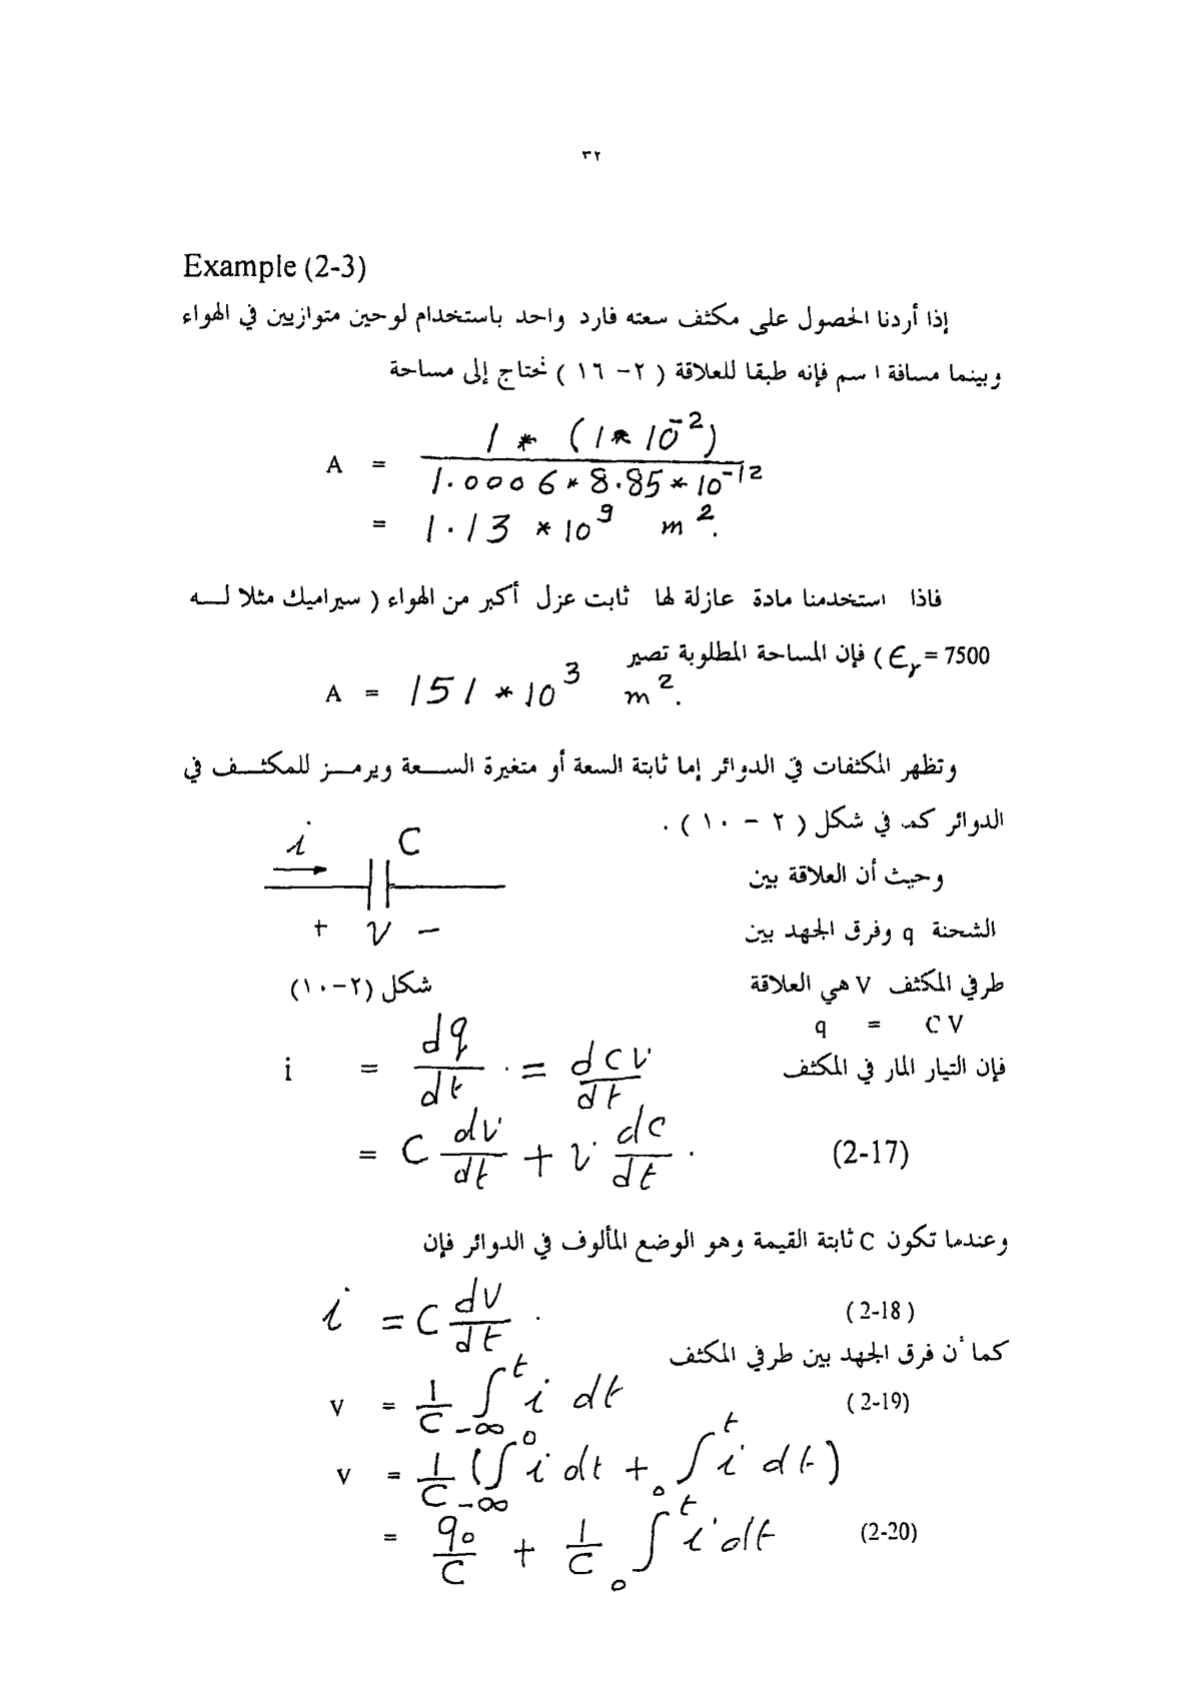 ٣٢
Example (2-3)
إذا أردنا الحصول على مكثف سعته فارد واحد باستخدام لوحين متوازيين في الهواء
وبينما مسافة ١ سم فإنه طبقا للعلاقة ( ٢- ١٦ ) نحتاج إلى مساحة
A = 1 * (1 * 10⁻²) / 1.0006 * 8.85 * 10⁻¹²
= 1.13 * 10⁹ m².
فاذا استخدمنا مادة عازلة لها ثابت عزل أكبر من الهواء ( سيراميك مثلا لـــه
ϵᵣ = 7500 ) فإن المساحة المطلوبة تصير
A = 151 * 10³ m².
وتظهر المكثفات في الدوائر إما ثابتة السعة أو متغيرة الســـعة ويرمـــز للمكثـــف في
الدوائر كم في شكل ( ٢ - ١٠ ) .
i C
+ v −
شكل (٢-١٠)
وحيث أن العلاقة بين
الشحنة q وفرق الجهد بين
طرفي المكثف V هي العلاقة
q = C V
فإن التيار المار في المكثف
i = dq/dt = dcv/dt
= C dv/dt + v dc/dt . (2-17)
وعندما تكون C ثابتة القيمة وهو الوضع المألوف في الدوائر فإن
i = C dv/dt . ( 2-18 )
كما أن فرق الجهد بين طرفي المكثف
v = 1/C ₋∞∫ᵗ i dt ( 2-19)
v = 1/C (₋∞∫⁰ i dt + ₀∫ᵗ i dt)
= q₀/C + 1/C ₀∫ᵗ i dt (2-20)